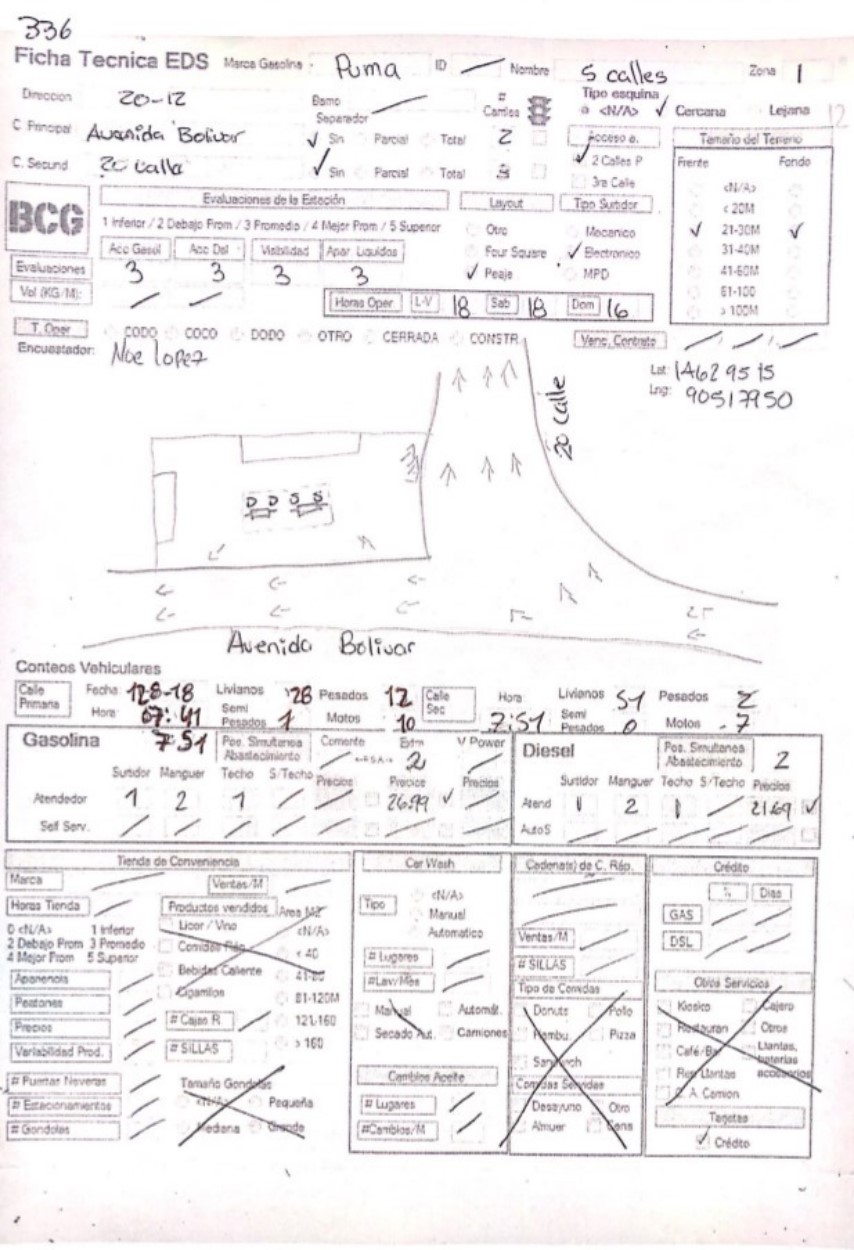 336
Ficha Tecnica EDS Marca Gasolina - Puma ID Nombre 5 calles Zona 1
Direccion 20-12 Barrio # Carriles Tipo esquina <N/A> Cercana Lejana 12
Separador
C Principal Avenida Bolivar Sin Parcial Total 2 Acceso a. Tamaño del Terreno
2 Calles P Frente Fondo
C. Secund 20 calle Sin Parcial Total 3 3ra Calle <N/A>
Evaluaciones de la Estación Layout Tipo Surtidor < 20M
BCG 1 Inferior / 2 Debajo Prom / 3 Promedio / 4 Mejor Prom / 5 Superior Otro Mecanico 21-30M
Acc Gasol Acc Dsl Visibilidad Apar Liquidos Four Square Electronico 31-40M
Evaluaciones 3 3 3 3 Peaje MPD 41-60M
61-100
Vol (KG/M): Horas Oper L-V 18 Sab 18 Dom 16 > 100M
T. Oper CODO COCO DODO OTRO CERRADA CONSTR. Venc. Contrato
Encuestador: Noe Lopez
Lat: 14629515
Lng: 90517950
20 Calle
D D S S
Avenida Bolivar
Conteos Vehiculares
Calle Primaria Fecha: 128-18 Livianos 28 Pesados 12 Calle Sec Hora Livianos 51 Pesados 2
Hora: 07:41 Semi Pesados 1 Motos 10 7:51 Semi Pesados 0 Motos 7
Gasolina 7 51 Pos. Simultanea Abastecimiento Corriente Extra 2 V Power Diesel Pos. Simultanea Abastecimiento 2
Surtidor Manguer Techo S/Techo Precios Precios Precios Surtidor Manguer Techo S/Techo Precios
Atendedor 1 2 1 26.99 Atend 1 2 1 21.69
Self Serv. AutoS
Tienda de Conveniencia Car Wash Cadena(s) de C. Ráp. Crédito
Marca Ventas/M <N/A> % Dias
Horas Tienda Productos vendidos Area M2 Tipo Manual GAS
0 <N/A> 1 Inferior Licor / Vino <N/A> Automatico Ventas/M DSL
2 Debajo Prom 3 Promedio Comidas Ráp < 40 # Lugares # SILLAS
4 Mejor Prom 5 Superior Bebidas Caliente #Lav/Mes Tipo de Comidas Otros Servicios
Apariencia Cigarrillos 81-120M Manual Automát. Donuts Pollo Kiosko Cajero
Precios # Cajas R 121-160 Secado Aut. Camiones Hambu. Pizza Restauran Otros
Variabilidad Prod. # SILLAS > 160 Sandwich Café/Bar Llantas, baterias accesorios
# Puertas Neveras Tamaño Gondolas Cambios Aceite Comidas Servidas Rep Llantas
# Estacionamientos <N/A> Pequeña # Lugares Desayuno Otro C. A. Camion
# Gondolas Mediana Grande #Cambios/M Almuer Cena Tarjetas
Crédito